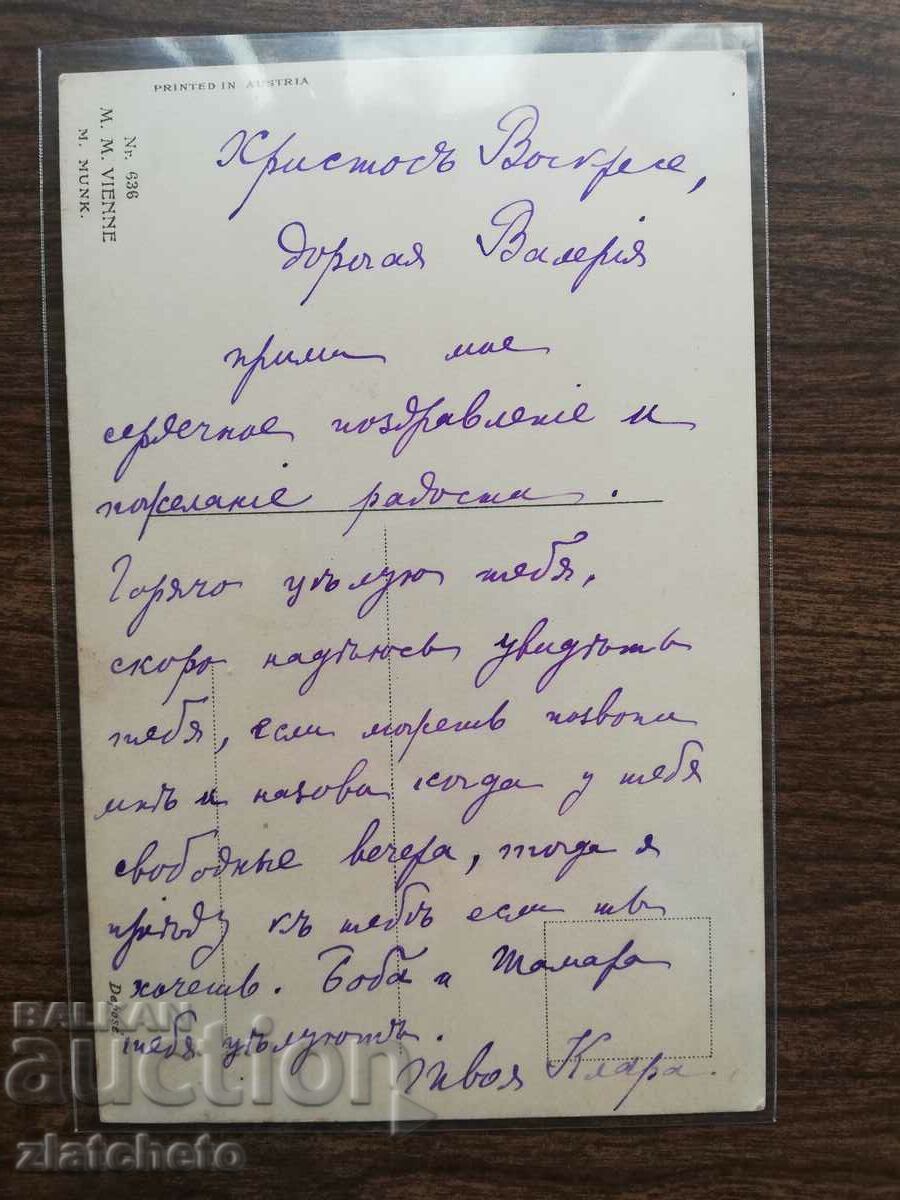 PRINTED IN AUSTRIA
Nr. 636
M. M. VIENNE
M. MUNK.
Христосъ Воскресе,
дорогая Валерія
прими мое
сердечное поздравленіе и
пожеланіе радости.
Горячо цѣлую тебя,
скоро надѣюсь увидѣть
тебя, если можешь позвони
мнѣ и назови когда у тебя
свободные вечера, тогда я
пріѣду къ тебѣ если ты
хочешь. Боба и Тамара
тебя цѣлуютъ.
твоя Клара.
Déposé
BALKAN
auction
zlatcheto